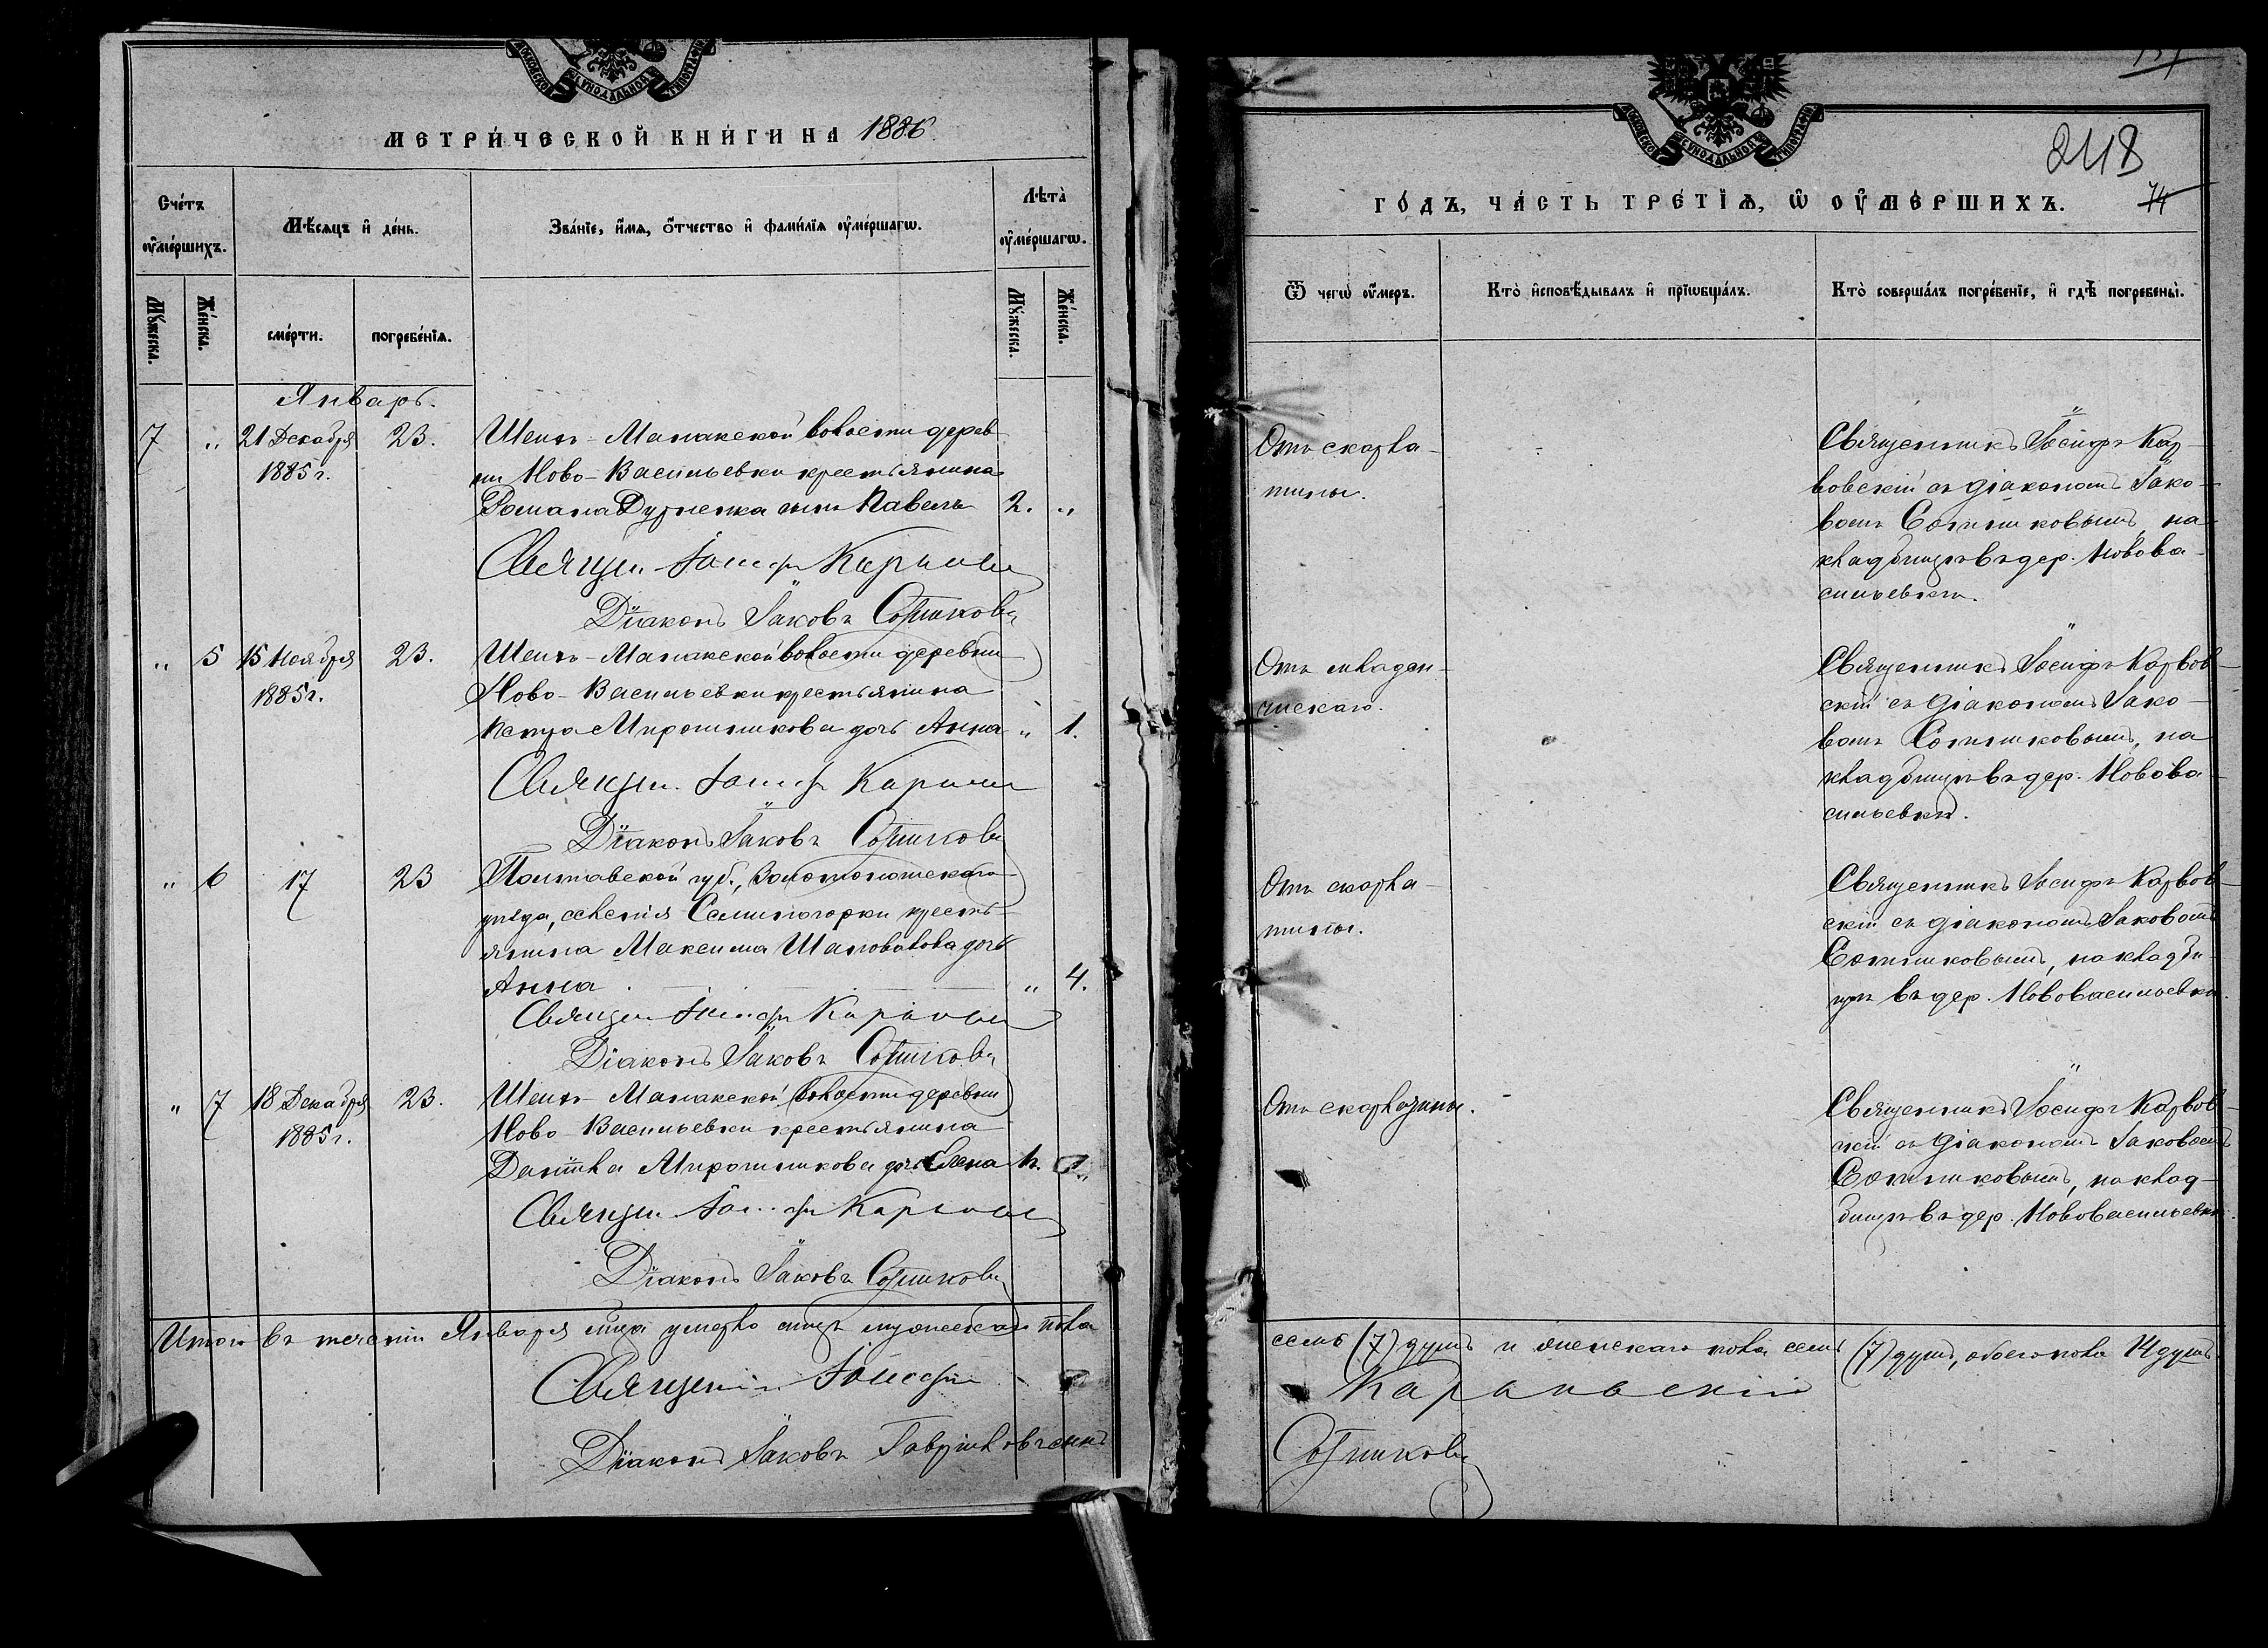 МЕТРИ́ЧЕСКОЙ КНИ́ГИ НА 1886
Сче́тъ ᲂу҆ме́ршихъ.
Мѣ́сяцъ и҆ де́нь.
Зва́нїе, и҆́мя, ѻ҆́тчество и҆ фами́лїя ᲂу҆ме́ршагѡ.
Лѣта̀ ᲂу҆ме́ршагѡ.
Му́жеска.
Же́нска.
сме́рти.
погребе́нїя.
Му́жеска.
Же́нска.
Январь.
7 " 21 Декабря 23. Шенъ-Манакской волости дерев-
1885 г. ни Ново-Васильевки крестьянина
Романа Дурненка сынъ Павелъ 2. "
Священ. Іосифъ
Діаконъ Іаковъ Сотников
" 5 15 Ноября 23. Шенъ-Манакской волости деревни
1885 г. Ново-Васильевки крестьянина
Петра Мирошникова дочь Анна " 1.
Священ. Іосифъ
Діаконъ Іаковъ Сотников
" 6 17 23 Полтавской губ., Золотоношскаго
уѣзда, селенія крестья-
янина Максима Шаповалова дочь
Анна " 4.
Священ Іосифъ
Діаконъ Іаковъ Сотников
" 7 18 Декабря 23. Шенъ-Манакской волости деревни
1885 г. Ново-Васильевки крестьянина
Даніила Мирошникова дочь Елена
Священ. Іосифъ
Діаконъ Іаковъ Сотников
Итого въ теченіи Января мѣца умерло мужескаго пола
Священникъ Іосифъ
Діаконъ Іаковъ
218
74
ГО́ДЪ, ЧА́СТЬ ТРЕ́ТЇЯ, Ѽ ОУ҆МЕ́РШИХЪ.
Ѿ чегѡ̀ ᲂу҆́меръ.
Кто̀ и҆сповѣ́дывалъ и҆ прїѡбща́лъ.
Кто̀ соверша́лъ погребе́нїе, и҆ гдѣ̀ погребены̀.
Отъ скарла- Священникъ Іосифъ Кар-
тины. вовскій съ діакономъ Іако-
вомъ Сотниковымъ, на
кладбищѣ въ дер. Новова-
сильевкѣ.
Отъ младен- Священникъ Іосифъ Карвов-
ческаго. скій съ діакономъ Іако-
вомъ Сотниковымъ, на
кладбищѣ въ дер. Новова-
сильевкѣ.
Отъ скарла- Священникъ Іосифъ Карвов-
тины. скій съ діакономъ Іаковомъ
Сотниковымъ, на кладби-
щѣ въ дер. Нововасильевки.
Отъ скарлатины. Священникъ Іосифъ Карвов-
скій съ діакономъ Іаковомъ
Сотниковымъ, на клад-
бищѣ въ дер. Нововасильевки.
семь (7) душъ и женскаго пола семь (7) душъ, обоего пола 14 душъ.
Сотников